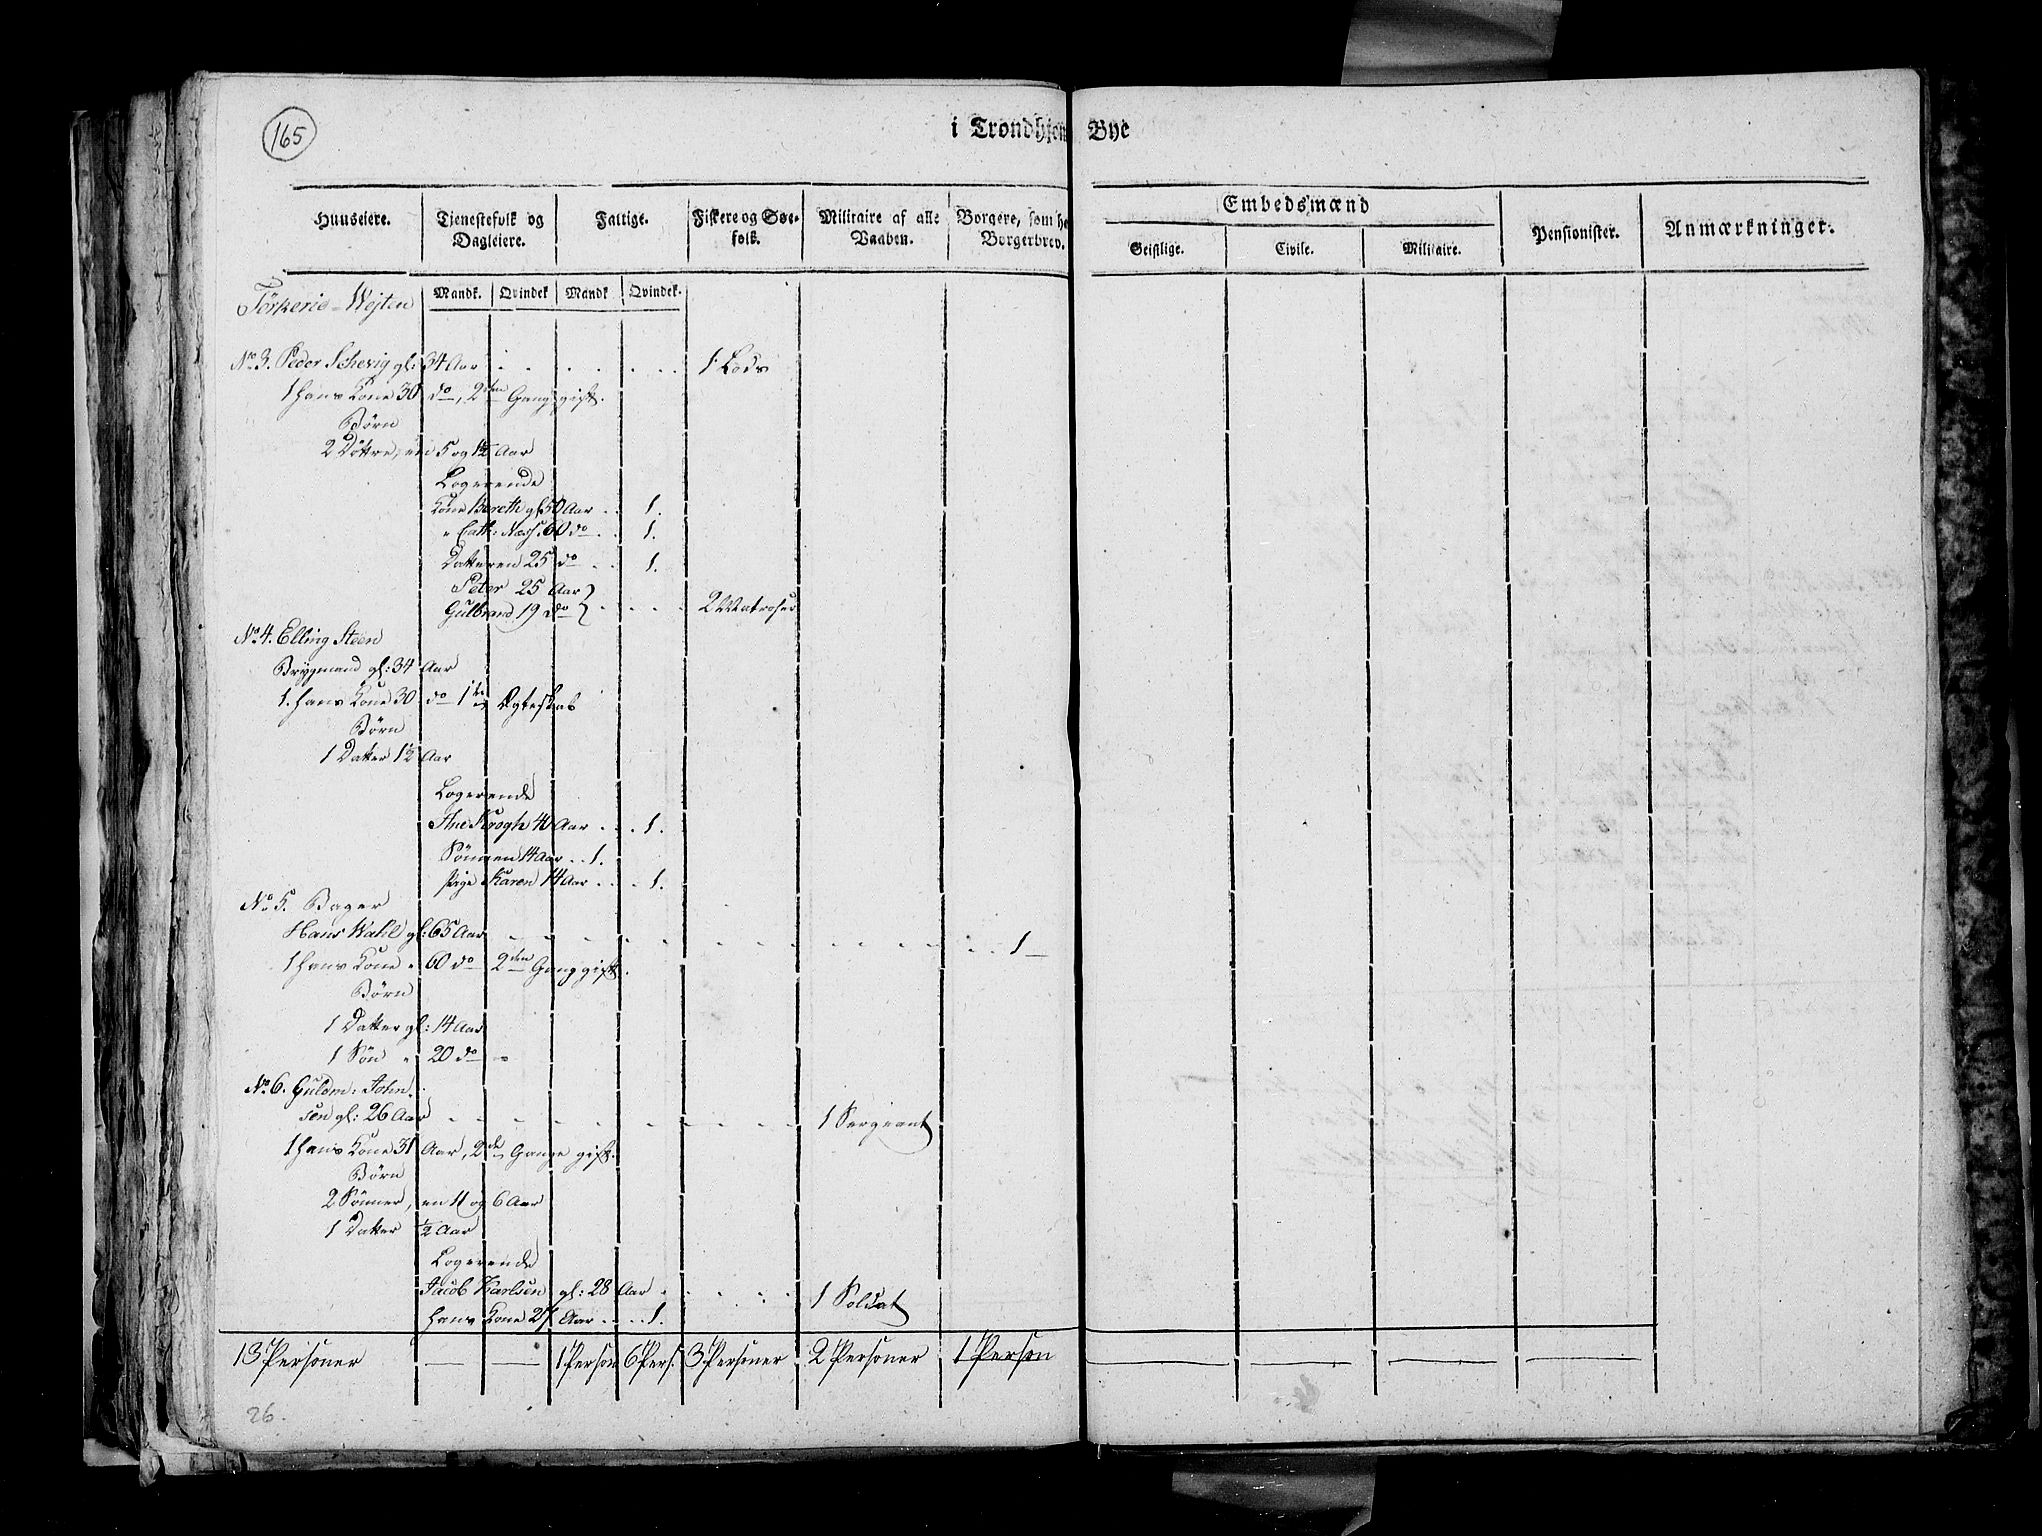 165
i Trondhjem Bye
Huuseiere. Tjenestefolk og Dagleiere. Fattige. Fiskere og Søefolk. Militaire af alle Vaaben. Borgere, som ha Borgerbrev. Embedsmænd Pensionister. Anmærkninger.
Geistlige. Civile. Militaire.
Mandk. Qvindek Mandk Qvindek.
Wejten
No 3. Peder Schevig gl: 34 Aar . . . . . . 1 Lods
1 hans Kone 30 do, 2den Gang gift.
Børn
2 Døttre, en 5 og 1½ Aar
Logerende
Kone Bereth gl 50 Aar . . 1.
" Cath: Næss. 60 do . . 1.
Datteren 25 do . . 1.
Peter 25 Aar }
Gulbrand 19 do } . . . . 2 Matroser
No 4. Elling Steen
Brygmand gl: 34 Aar
1. hans Kone 30 do 1te Ægteskab
Børn
1 Datter 1½ Aar
Logerende
Ane Krogh 40 Aar . . . 1.
Sønnen 14 Aar . . 1.
Pige Karen 14 Aar . . . 1.
No 5. Bager
Hans Wahl gl: 65 Aar . . . . . . . . . 1 —
1 hans Kone " 60 do 2den Gang gift.
Børn
1 Datter gl: 14 Aar
1 Søn " 20 do
No 6. Guldm: John-
sen gl: 26 Aar . . . . . . . 1 Sergeant
1 hans Kone 31 Aar, 2de Gange gift.
Børn
2 Sønner, en 11 og 6 Aar
1 Datter ½ Aar
Logerende
Jacob Karlsen gl: 28 Aar . . . . . 1 Soldat
hans Kone 27 Aar . . . . 1.
13 Personer — — 1 Person 6 Pers. 3 Personer 2 Personer 1 Person — — — —
26.